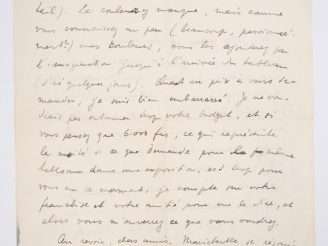 tail). La couleur y manque, mais comme
vous connaissez un peu (beaucoup, passionné-
ment) mes couleurs, vous les ajouterez par
l'imagination jusqu'à l'arrivée du tableau
(d'ici quelques jours). Quant au prix à vous de-
mander, je suis bien embarrassé. Je ne vou-
drais pas entamer trop votre budget, et si
vous pensez que 6000 frs, ce qui représente
la moitié de ce que demande pour le même
tableau dans une exposition, est trop pour
vous en ce moment, je compte sur votre
franchise et votre amitié pour me le dire, et
alors vous m'enverrez ce que vous voudrez.
Au revoir, chers amis,